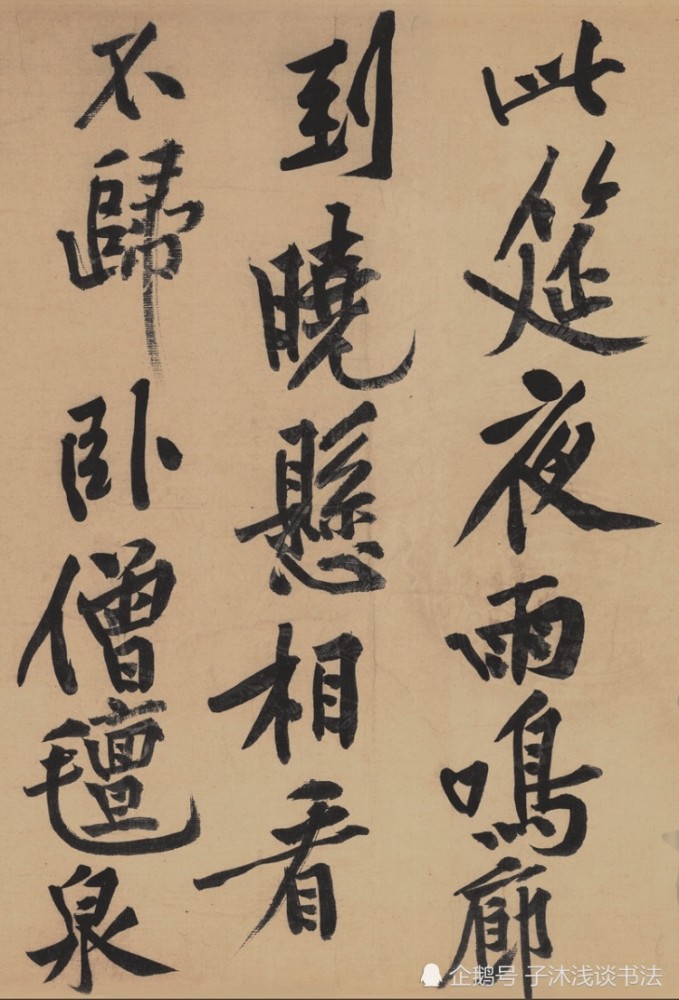 此筵夜雨鳴廊
到曉懸相看
不歸卧僧氊泉
企鹅号 子沐浅谈书法